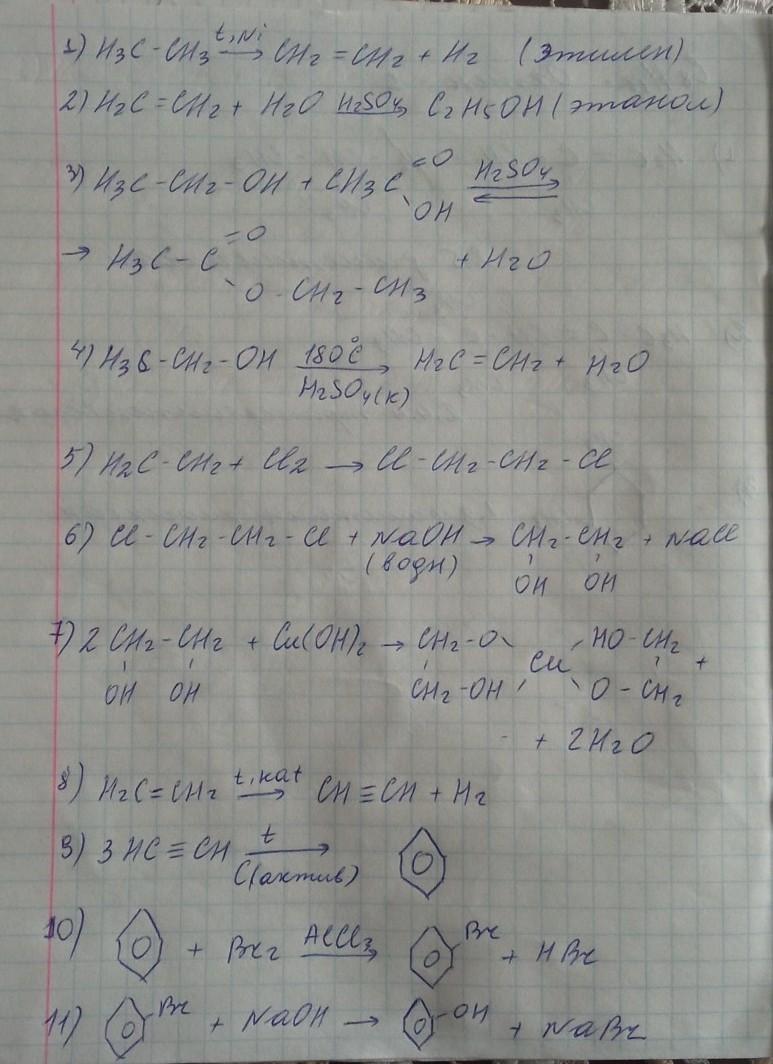 1) H3C-CH3 t,Ni → CH2=CH2 + H2 (этилен)
2) H2C=CH2 + H2O H2SO4 → C2H5OH (этанол)
3) H3C-CH2-OH + CH3C =O OH H2SO4 ⇄
→ H3C-C =O O-CH2-CH3 + H2O
4) H3C-CH2-OH 180°C → H2SO4(к) H2C=CH2 + H2O
5) H2C-CH2 + Cl2 → Cl-CH2-CH2-Cl
6) Cl-CH2-CH2-Cl + NaOH → CH2-CH2 + NaCl
(водн)
OH OH
7) 2 CH2-CH2 + Cu(OH)2 → CH2-O Cu HO-CH2 +
OH OH CH2-OH O-CH2
+ 2H2O
8) H2C=CH2 t,кат → CH≡CH + H2
9) 3HC≡CH t →
C(актив)
10) + Br2 AlCl3 → Br + HBr
11) Br + NaOH → OH + NaBr